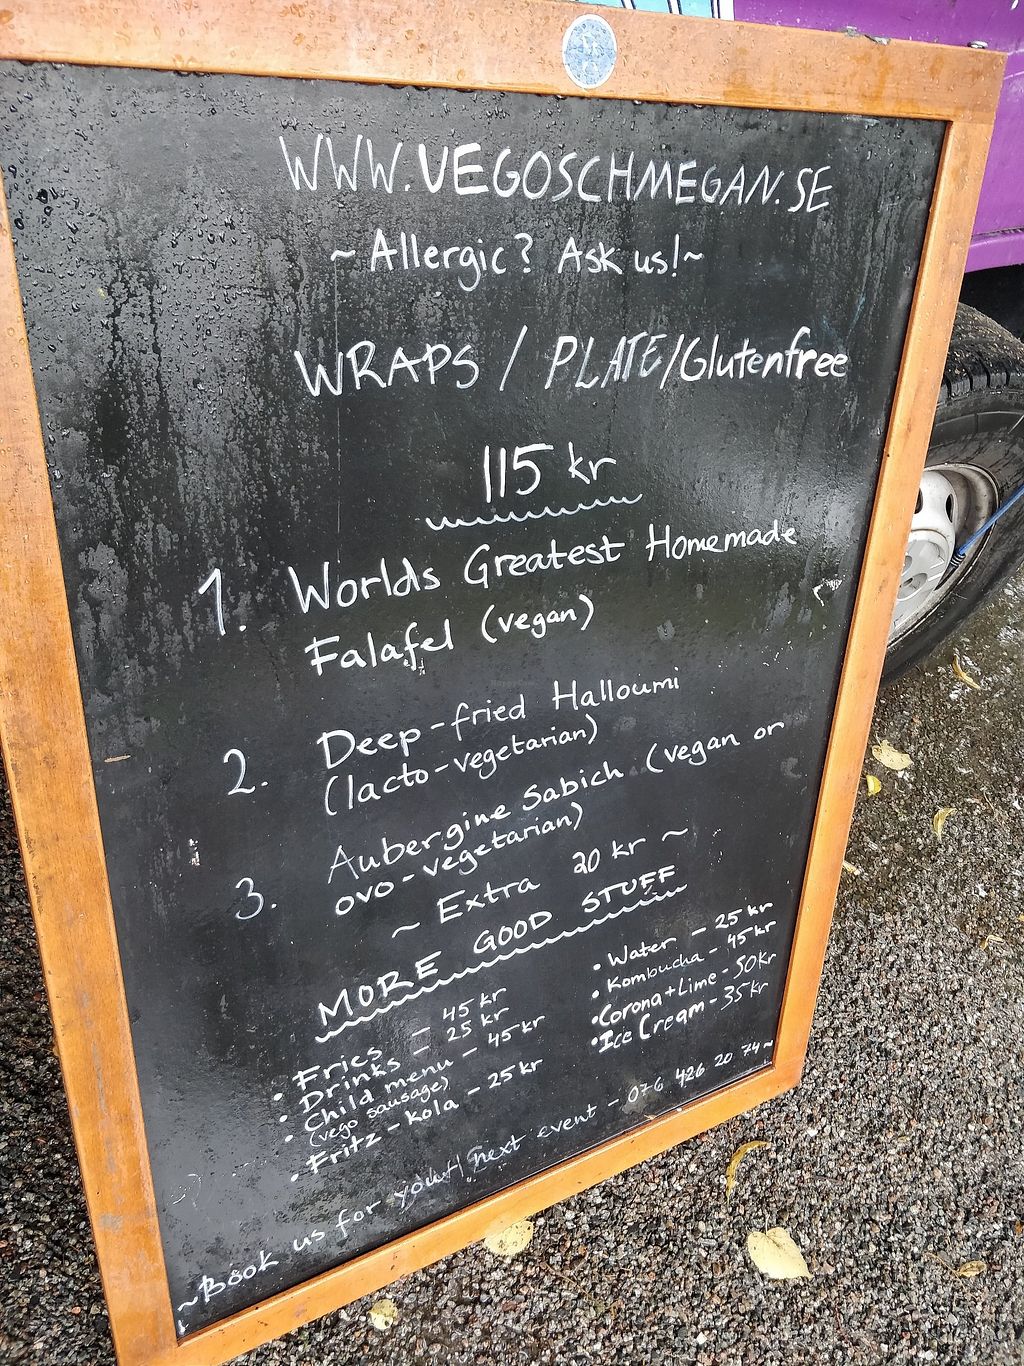 WWW.VEGOSCHMEGAN.SE
~Allergic? Ask us!~
WRAPS / PLATE/Glutenfree
115 kr
1. Worlds Greatest Homemade
Falafel (vegan)
2. Deep-fried Halloumi
(lacto-vegetarian)
3. Aubergine Sabich (vegan or
ovo-vegetarian)
~ Extra 20 kr ~
MORE GOOD STUFF
• Fries - 45 kr
• Drinks - 25 kr
• Child menu - 45 kr
(vego sausage)
• Fritz-kola - 25 kr
• Water - 25 kr
• Kombucha - 45 kr
• Corona + Lime - 50 kr
• Ice Cream - 35 kr
~Book us for your next event - 076 426 20 74~